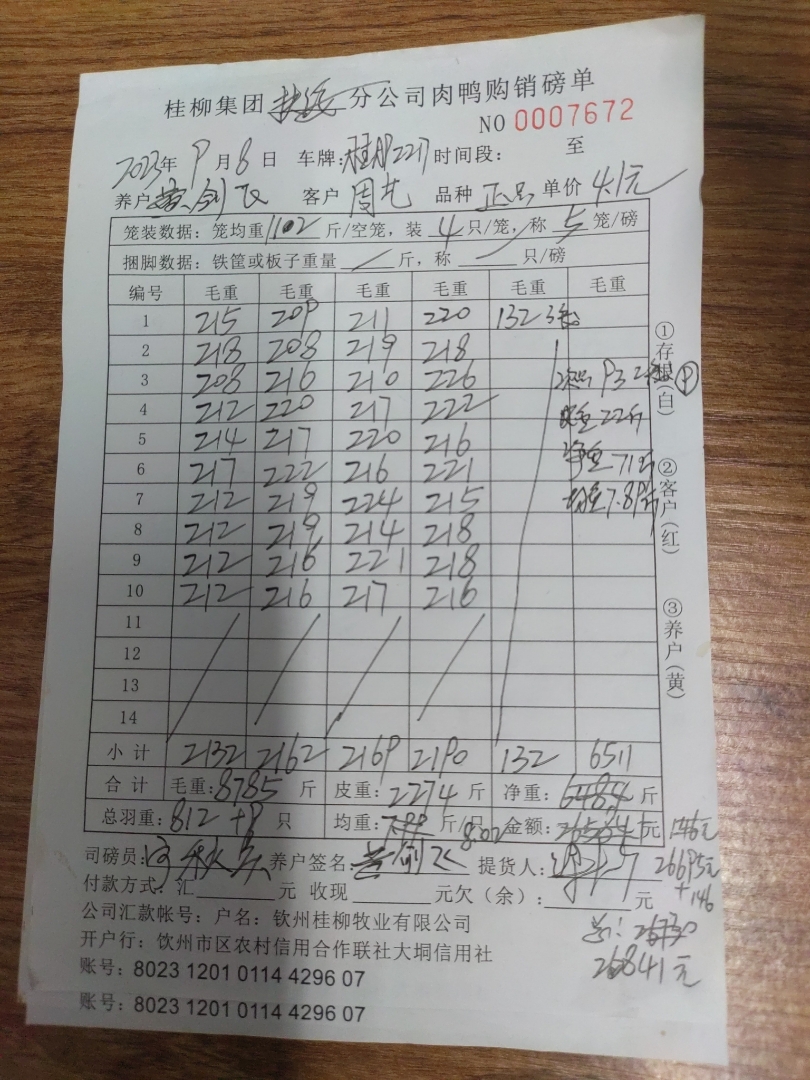 桂柳集团 分公司肉鸭购销磅单
NO 0007672
2023年 9 月 8 日 车牌: 时间段: 至
养户 剑飞 客户 周 品种 正品 单价 4.1元
笼装数据: 笼均重 11.02 斤/空笼, 装 4 只/笼, 称 5 笼/磅
捆脚数据: 铁筐或板子重量 / 斤, 称 / 只/磅
编号 毛重 毛重 毛重 毛重 毛重 毛重
1 215 209 211 220 132 3
2 218 208 219 218
3 208 216 210 226 93 2 9
4 212 220 217 222 皮重22斤
5 214 217 220 216 净重71斤
6 217 222 216 221 均重7.89斤
7 212 219 224 215
8 212 219 214 218
9 212 216 221 218
10 212 216 217 216
11
12
13
14
小计 2132 2162 2169 2190 132 6511
合计 毛重: 8785 斤 皮重: 2274 斤 净重: 斤
总羽重: 812 +9 只 均重: 斤/只 8.02 金额: 元 146元
司磅员: 养户签名: 剑飞 提货人: 26695元
+146
付款方式: 汇 元 收现 元欠(余): 元
公司汇款帐号: 户名: 钦州桂柳牧业有限公司
开户行: 饮州市区农村信用合作联社大垌信用社
26841元
账号: 8023 1201 0114 4296 07
账号: 8023 1201 0114 4296 07
①存根(白)
②客户(红)
③养户(黄)